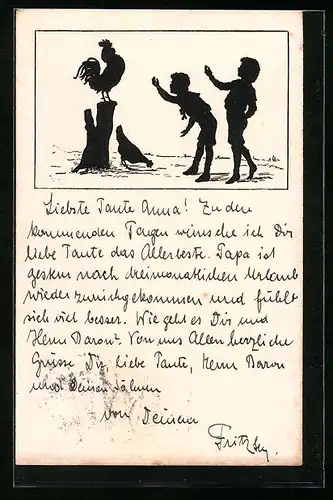 Liebste Tante Anna! Zu den
kommenden Tagen wünsche ich Dir
liebe Tante das Allerbeste. Papa ist
gestern nach dreimonatlichen Urlaub
wieder zurückgekommen und fühlt
sich viel besser. Wie geht es Dir und
Herrn Baron? Von uns Allen herzliche
Grüsse Dir, liebe Tante, Herrn Baron
und Deinen
von Deinem
Fritz